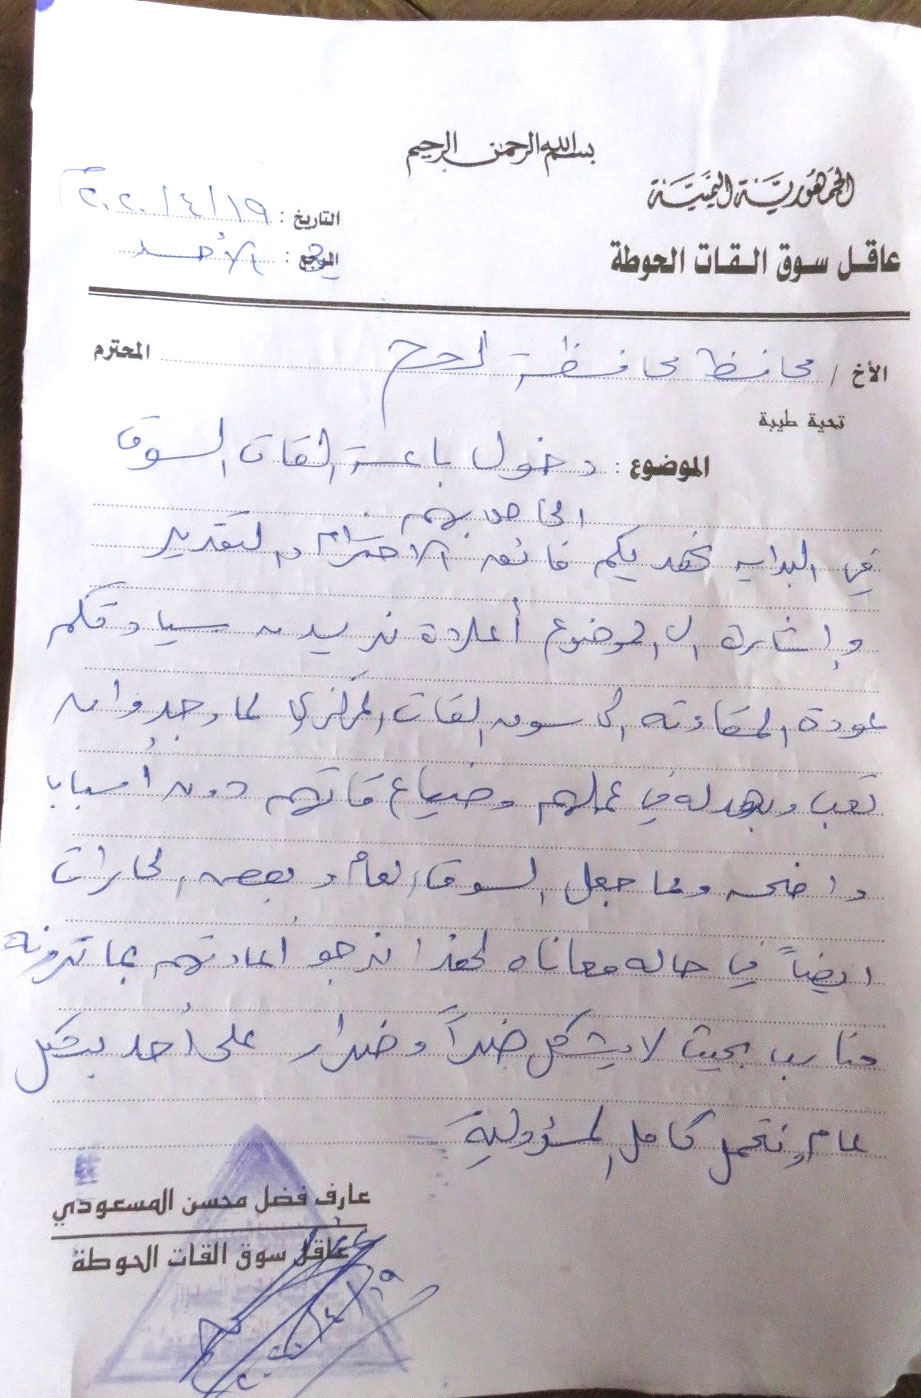 بسم الله الرحمن الرحيم
الجمهورية اليمنية
عاقل سوق القات الحوطة
التاريخ : ١٩/٤/٢٠٢٠م
المرجع : الأحد
الأخ / محافظ محافظة لحج المحترم
تحية طيبة
الموضوع : دخول باعة القات السوق
الخاص بهم
في البدايه نهديكم فائق الاحترام والتقدير
وإشارة الى الموضوع أعلاه نريد من سيادتكم
عودة المقاوته الى سوق القات المركزي لما وجدوا من
تعب وبهدله في عملهم وضياع قاتهم دون أسباب
واضحه ومما جعل السوق العام وبعض الحارات
ايضاً في حاله معاناه لهذا نرجو أعادتهم بما ترونه
مناسب بحيث لا يشكل ضرراً وضرار على أحد بشكل
عام ونتحمل كامل المسؤولية
عارف فضل محسن المسعودي
عاقل سوق القات الحوطة